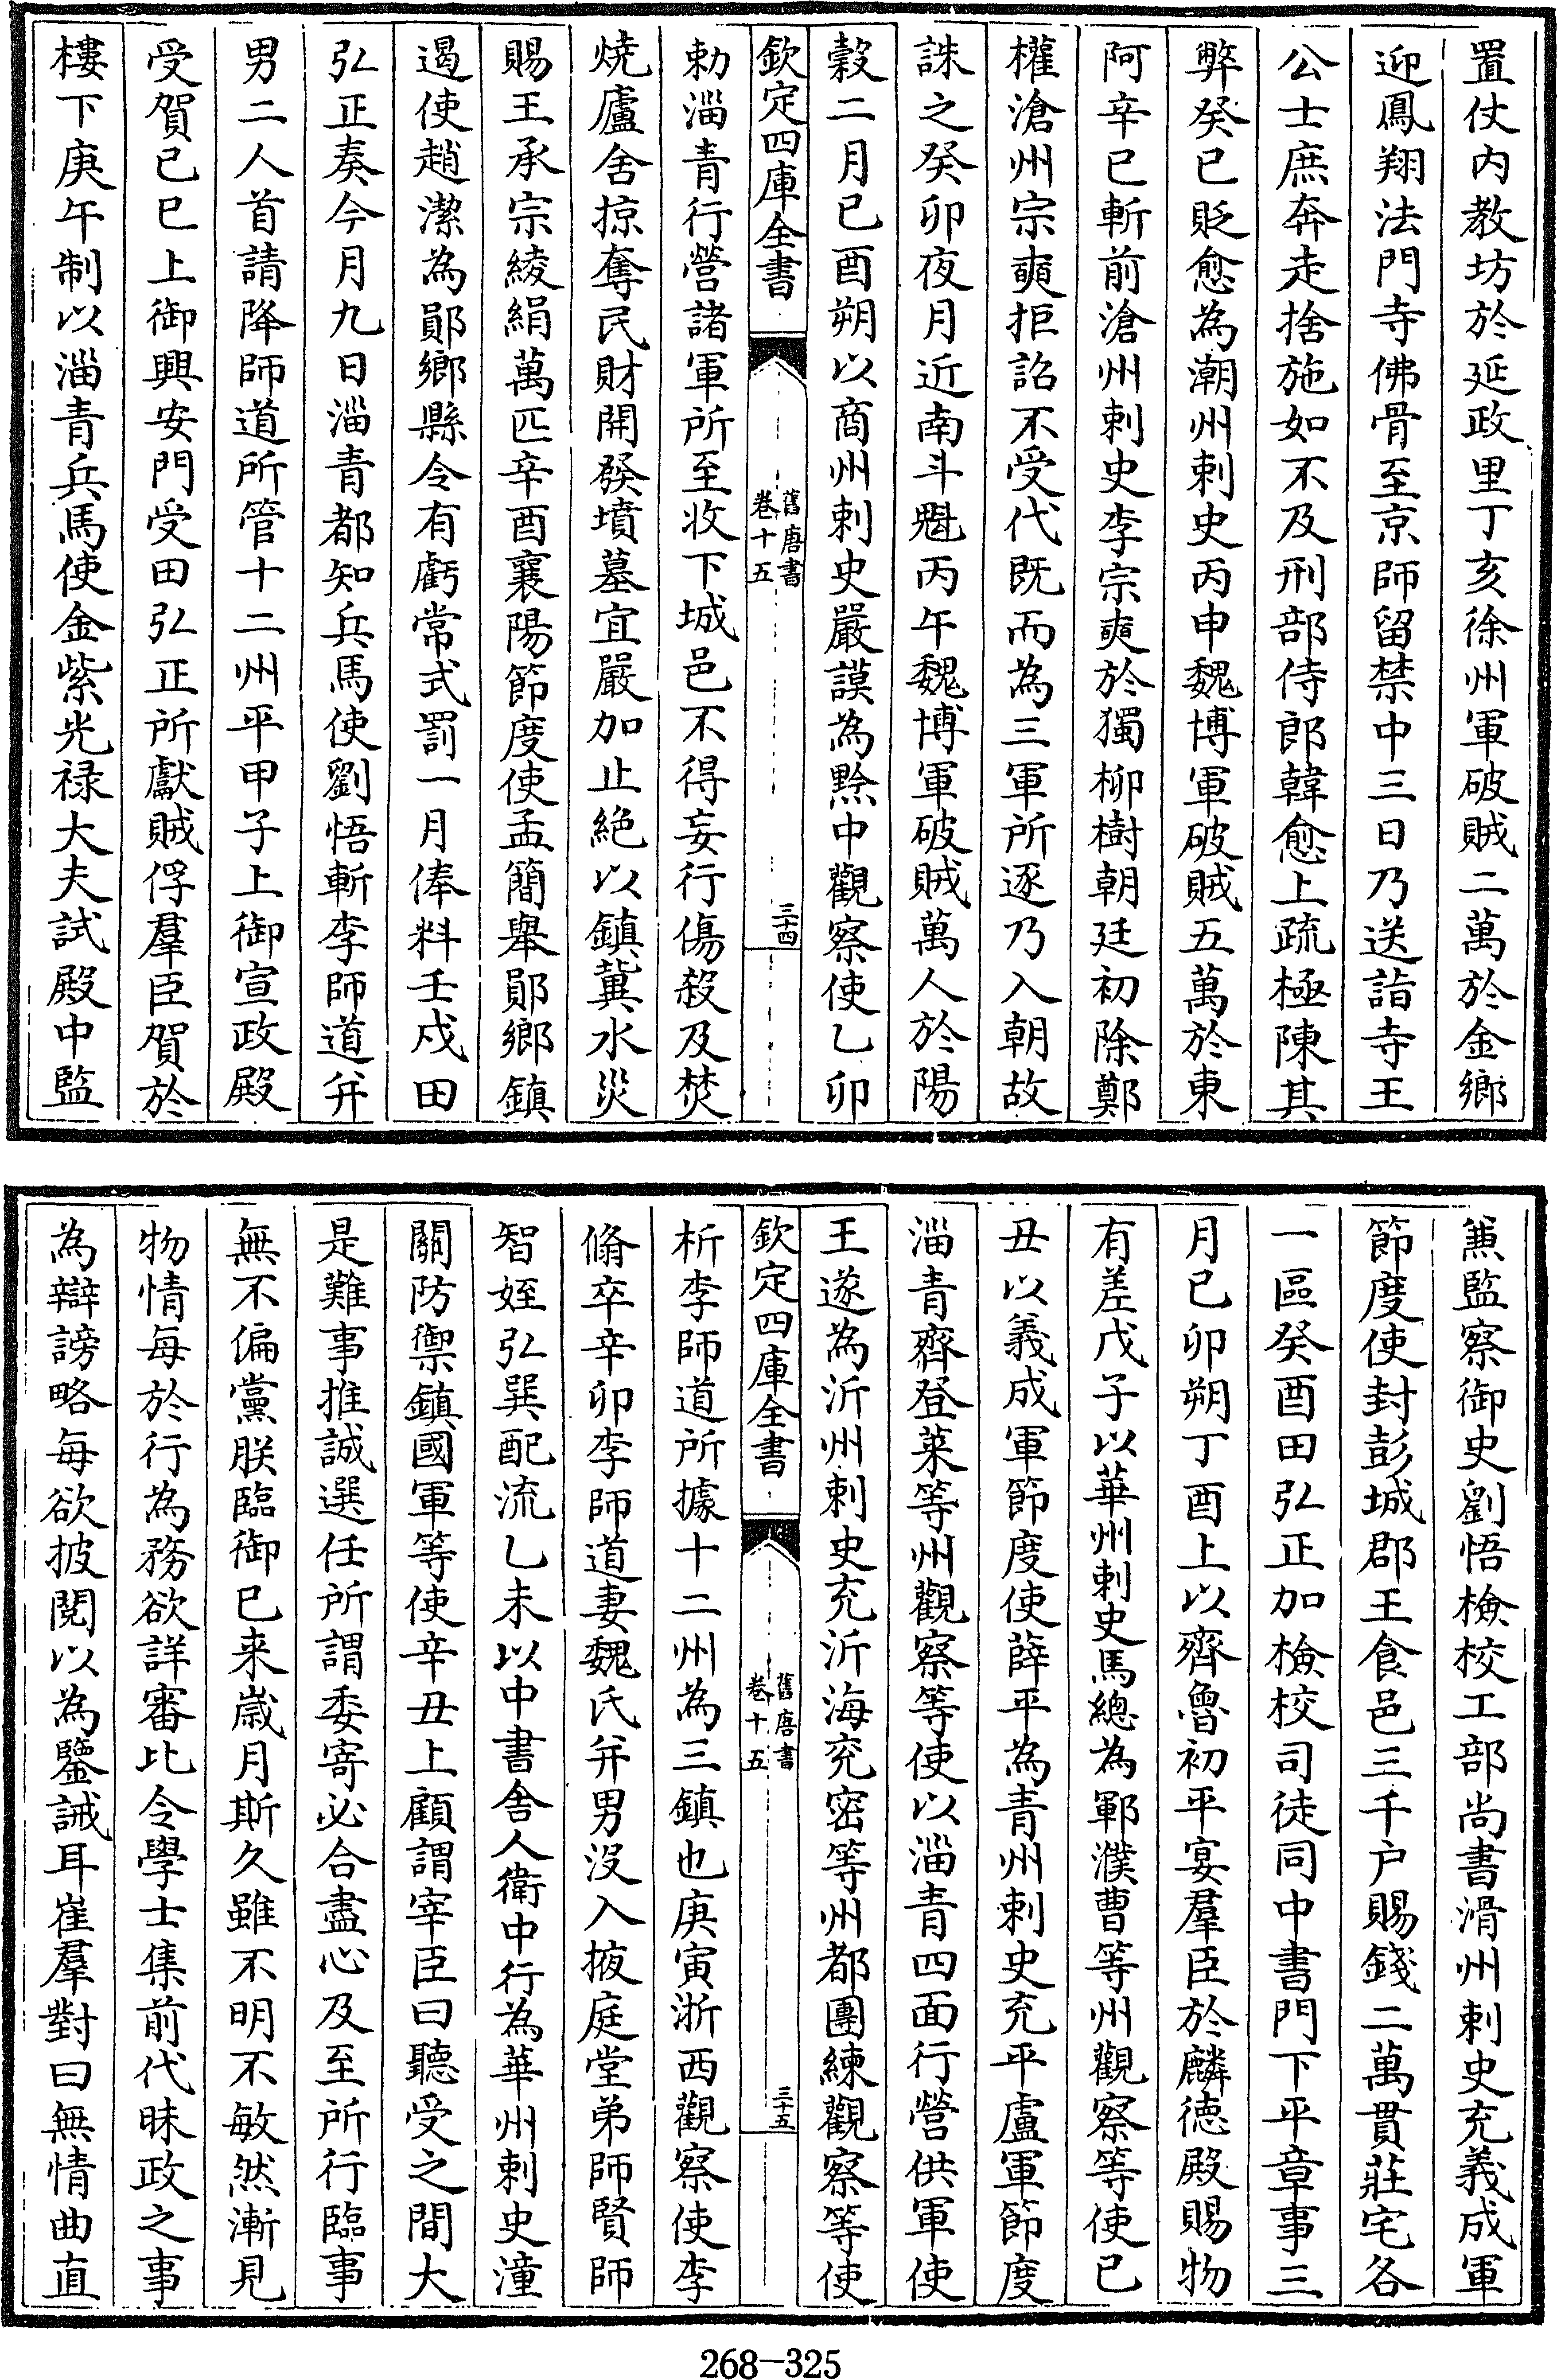 置仗内教坊於延政里丁亥徐州軍破賊二萬於金鄉
迎鳳翔法門寺佛骨至京師留禁中三日乃送詣寺王
公士庶奔走捨施如不及刑部侍郎韓愈上疏極陳其
弊癸巳貶愈為潮州剌史丙申魏博軍破賊五萬於東
阿辛巳斬前滄州剌史李宗奭於獨柳樹朝廷初除鄭
權滄州宗奭拒詔不受代既而為三軍所逐乃入朝故
誅之癸卯夜月近南斗魁丙午魏博軍破賊萬人於陽
穀二月己酉朔以商州剌史嚴謨為黔中觀察使乙卯
欽定四庫全書
舊唐書
卷十五
三十四
勅淄青行營諸軍所至收下城邑不得妄行傷殺及焚
燒廬舍掠奪民財開發墳墓宜嚴加止絶以鎮冀水災
賜王承宗綾絹萬匹辛酉襄陽節度使孟簡舉鄖鄉鎮
遏使趙潔為鄖鄉縣令有虧常式罰一月俸料壬戍田
弘正奏今月九日淄青都知兵馬使劉悟斬李師道并
男二人首請降師道所管十二州平甲子上御宣政殿
受賀己巳上御興安門受田弘正所獻賊俘羣臣賀於
樓下庚午制以淄青兵馬使金紫光禄大夫試殿中監
兼監察御史劉悟檢校工部尚書滑州剌史充義成軍
節度使封彭城郡王食邑三千户賜錢二萬貫莊宅各
一區癸酉田弘正加檢校司徒同中書門下平章事三
月己卯朔丁酉上以齊魯初平宴羣臣於麟德殿賜物
有差戊子以華州剌史馬總為鄆濮曹等州觀察等使己
丑以義成軍節度使薛平為青州剌史充平盧軍節度
淄青齊登萊等州觀察等使以淄青四面行營供軍使
王遂為沂州剌史充沂海兖密等州都團練觀察等使
欽定四庫全書
舊唐書
卷十五
三十五
析李師道所據十二州為三鎮也庚寅浙西觀察使李
脩卒辛卯李師道妻魏氏并男沒入掖庭堂弟師賢師
智姪弘巽配流乙未以中書舍人衛中行為華州剌史潼
關防禦鎮國軍等使辛丑上顧謂宰臣曰聽受之間大
是難事推誠選任所謂委寄必合盡心及至所行臨事
無不偏黨朕臨御已来嵗月斯久雖不明不敏然漸見
物情每於行為務欲詳審比令學士集前代昧政之事
為辯謗略每欲披閲以為鑒誡耳崔羣對曰無情曲直
268-325